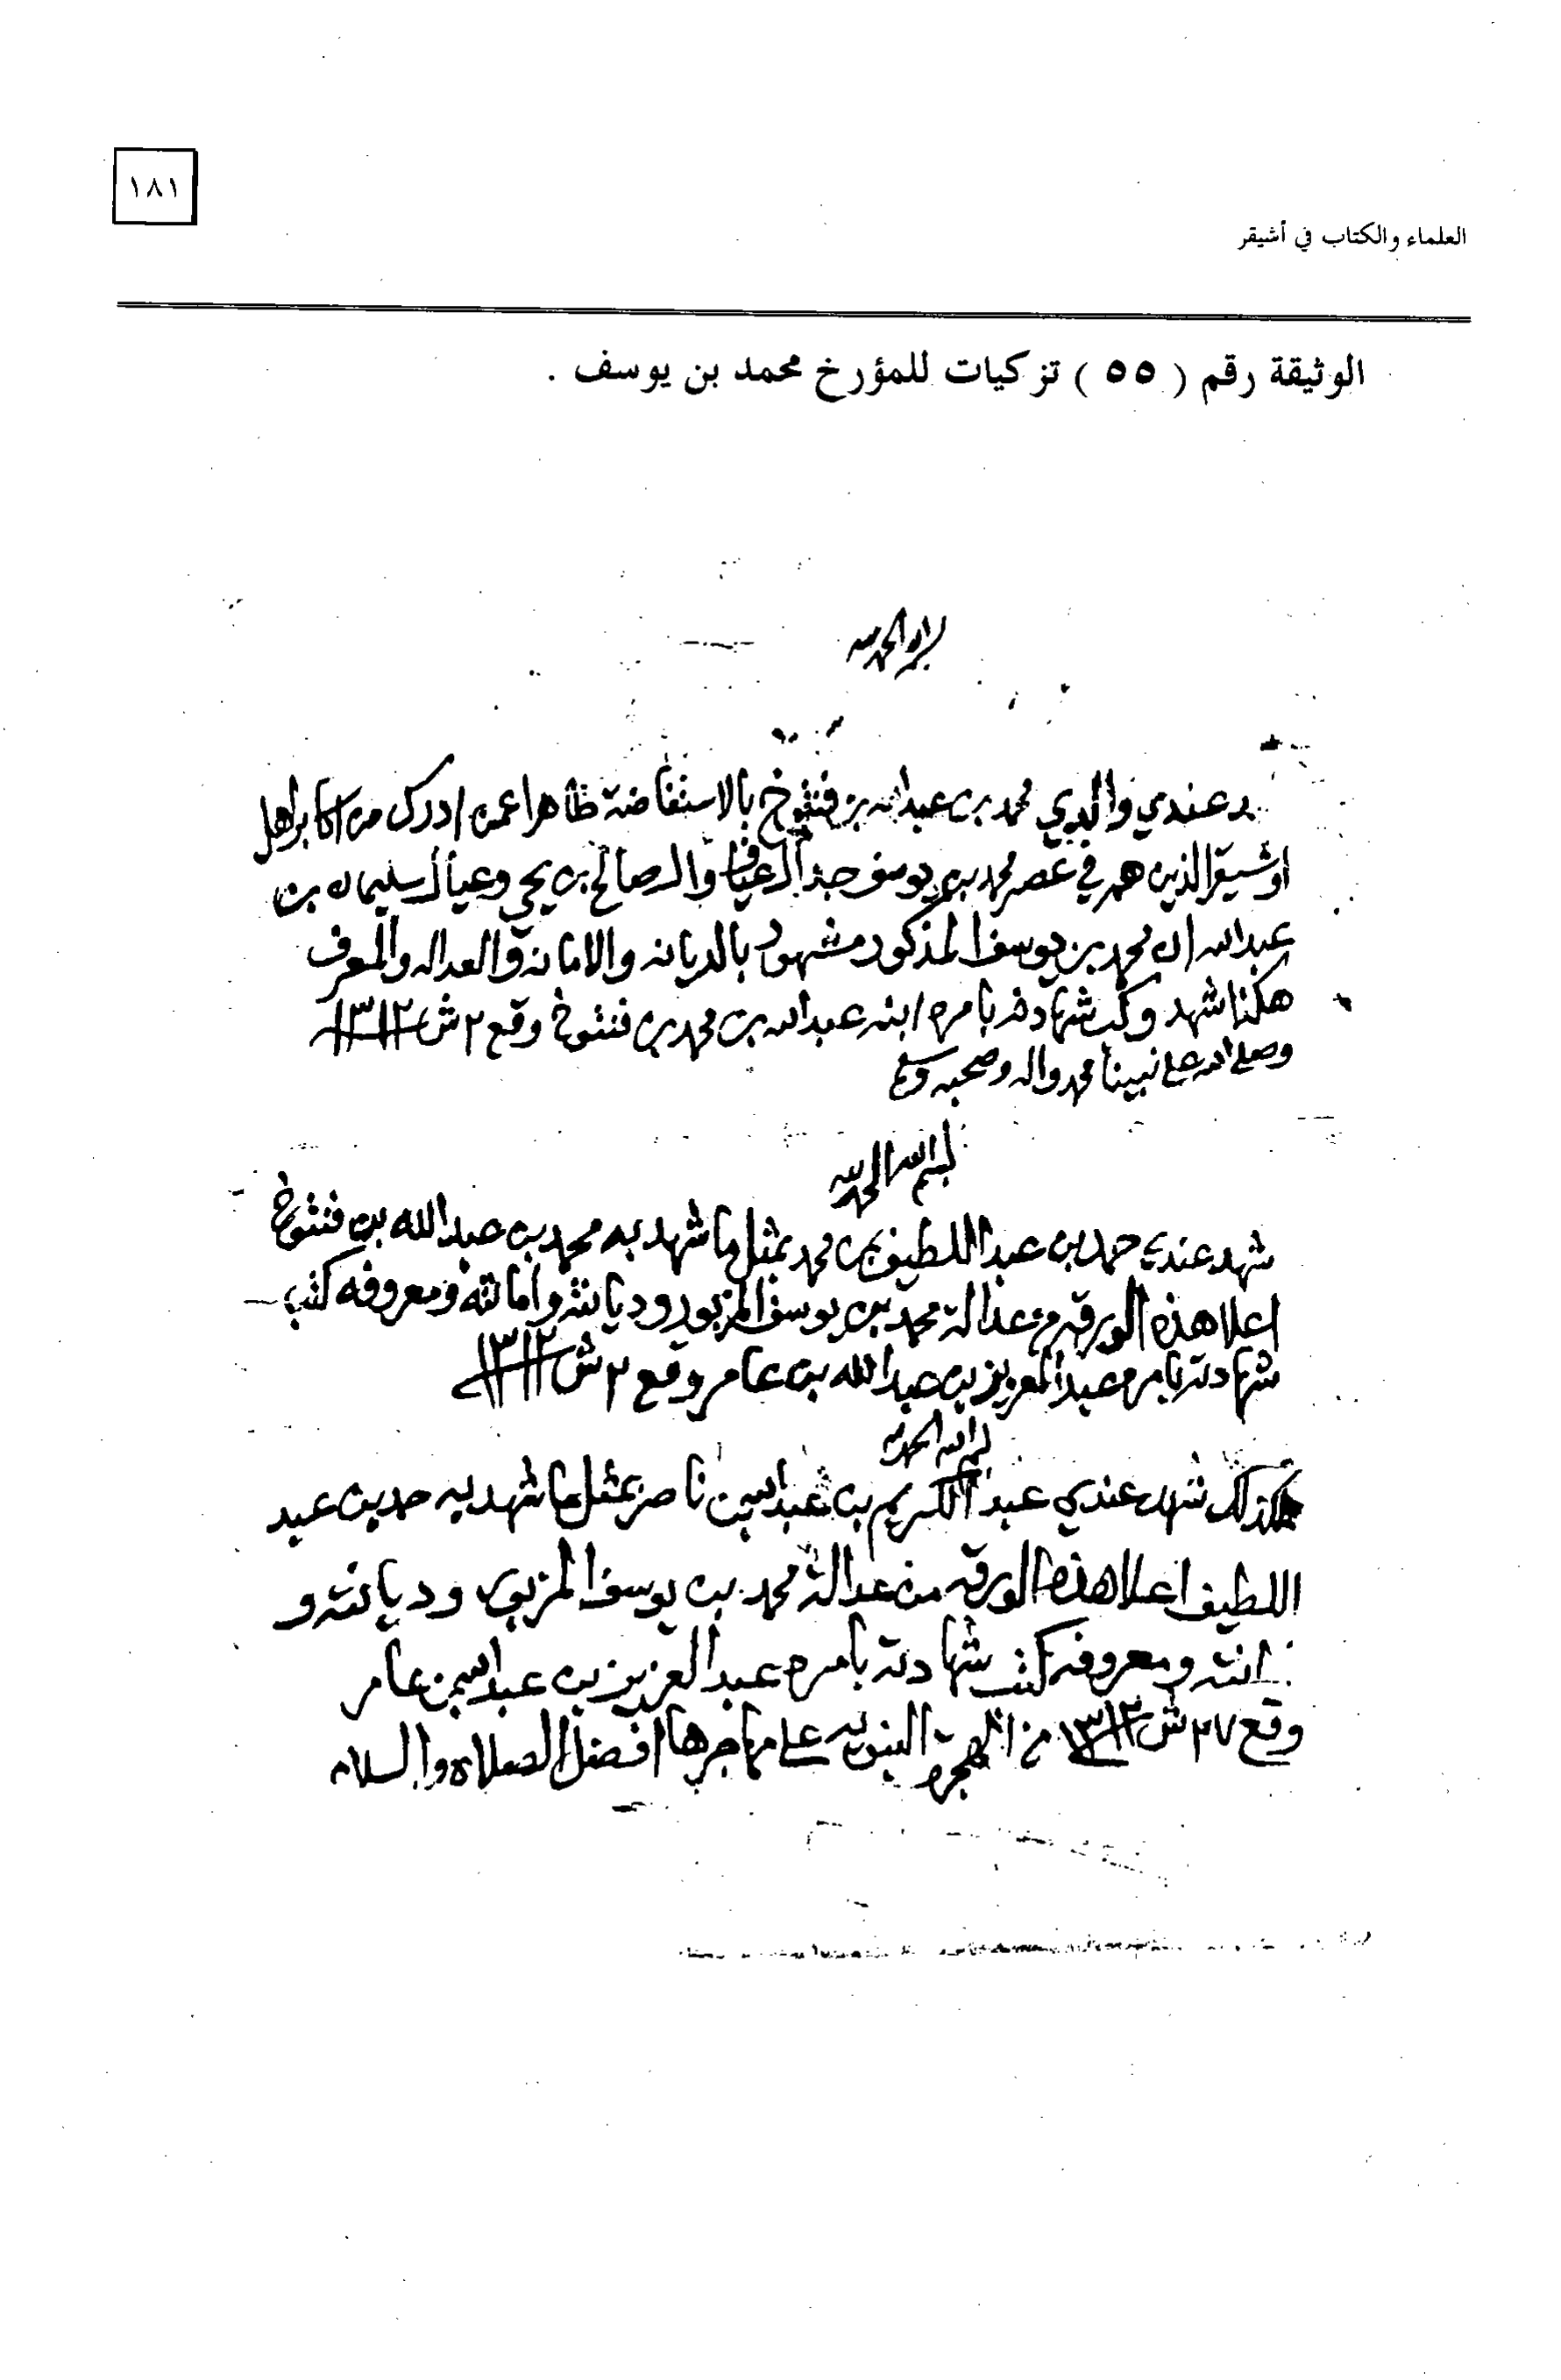 ١٨١
العلماء والكتاب في أشيقر
الوثيقة رقم ( ٥٥ ) تزكيات للمؤرخ محمد بن يوسف .
الحمد لله
عندي والدي محمد بن عبدالله بن فنتوخ بالاستفاضة ظاهرا عمن ادرك من اكابر اهل
اوشيقر الذين هم في عصر محمد بن يوسف جد آل عياف وال صالح بن يحيى وعيال سليمان بن
عبدالله ان محمد بن يوسف المذكور مشهور بالديانه والامانه والعداله والمعرف
هكذا شهد وكتب شهادته بامره ابنه عبدالله بن محمد بن فنتوخ وقع ٢ ش ١٣١٢
وصلى الله على نبينا محمد واله وصحبه وسلم
بسم الله الحمد لله
شهد عندي حمد بن عبد اللطيف بن محمد بمثل ما شهد به محمد بن عبدالله بن فنتوخ
اعلا هذه الورقه من عدالة محمد بن يوسف المزبور وديانته وامانته ومعروفه كتب
شهادته بامره عبدالعزيز بن عبدالله بن عامر وقع ٢ ش ١٣١٢
بسم الله الحمد لله
كذلك شهد عندي عبد الكريم بن عبدالله بن ناصر بمثل ما شهد به حمد بن عبد
اللطيف اعلا هذه الورقه من عدالة محمد بن يوسف المزبور وديانته و
ومعروفه كتب شهادته بامره عبد العزيز بن عبدالله بن عامر
وقع ٢٧ ش ١٣١٢ من الهجرة النبويه على مهاجرها افضل الصلاة والسلام